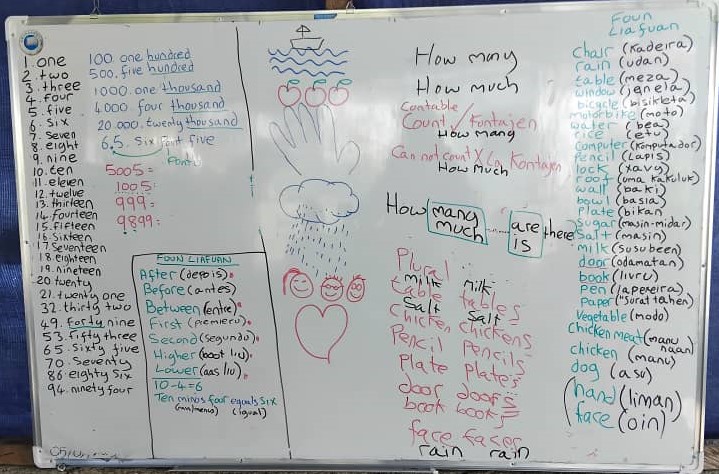 1. one
2. two
3. three
4. four
5. five
6. six
7. seven
8. eight
9. nine
10. ten
11. eleven
12. twelve
13. thirteen
14. fourteen
15. fifteen
16. sixteen
17. seventeen
18. eighteen
19. nineteen
20 twenty
21. twenty one
32. thirty two
49. forty nine
53. fifty three
65. sixty five
70. seventy
86. eighty six
94. ninety four
100. one hundred
500. five hundred
1000. one thousand
4.000. four thousand
20.000. twenty thousand
6,5. six point five
5005=
1005:
999=
9899=
FOUN LIAFUAN
After (depois)
Before (antes)
Between (entre)
First (premeiru)
Second (segundu)
Higher (boot liu)
Lower (aas liu)
10-4=6
Ten minos four equals six
(igual)
How many
How much
Contable
Count / Kontajen
How many
Can not count X La Kontajen
How much
How many are there
much is
Plural
milk milk
table tables
Salt Salt
chicken chickens
Pencil Pencils
Plate plates
door doors
book books
face faces
rain rain
Foun
Liafuan
chair (Kadeira)
rain (udan)
table (meza)
window (jenela)
bicycle (bisikleta)
motorbike (moto)
water (bea)
rice (etu)
computer (Komputador)
pencil (Lapis)
lock (xavy)
roof (uma kakuluk)
wall (baki)
bowl (basia)
plate (bikan
sugar (masin-midar)
salt (masin)
milk (susubeen)
door (odamatan)
book (livru)
pen (lapezeira)
paper "surat tahen)
vegetable (modo)
chicken meat (manu naan)
chicken (manu)
dog (asu)
(hand (liman)
face (oin)